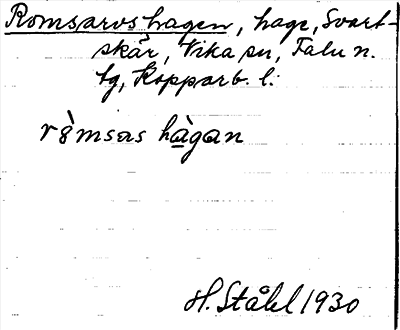 Romsarvshagen, hage, Svart-
skär, Vika sn, Falu n.
tg, Kopparb. l.
ròmsas hàgan
H. Ståhl 1930